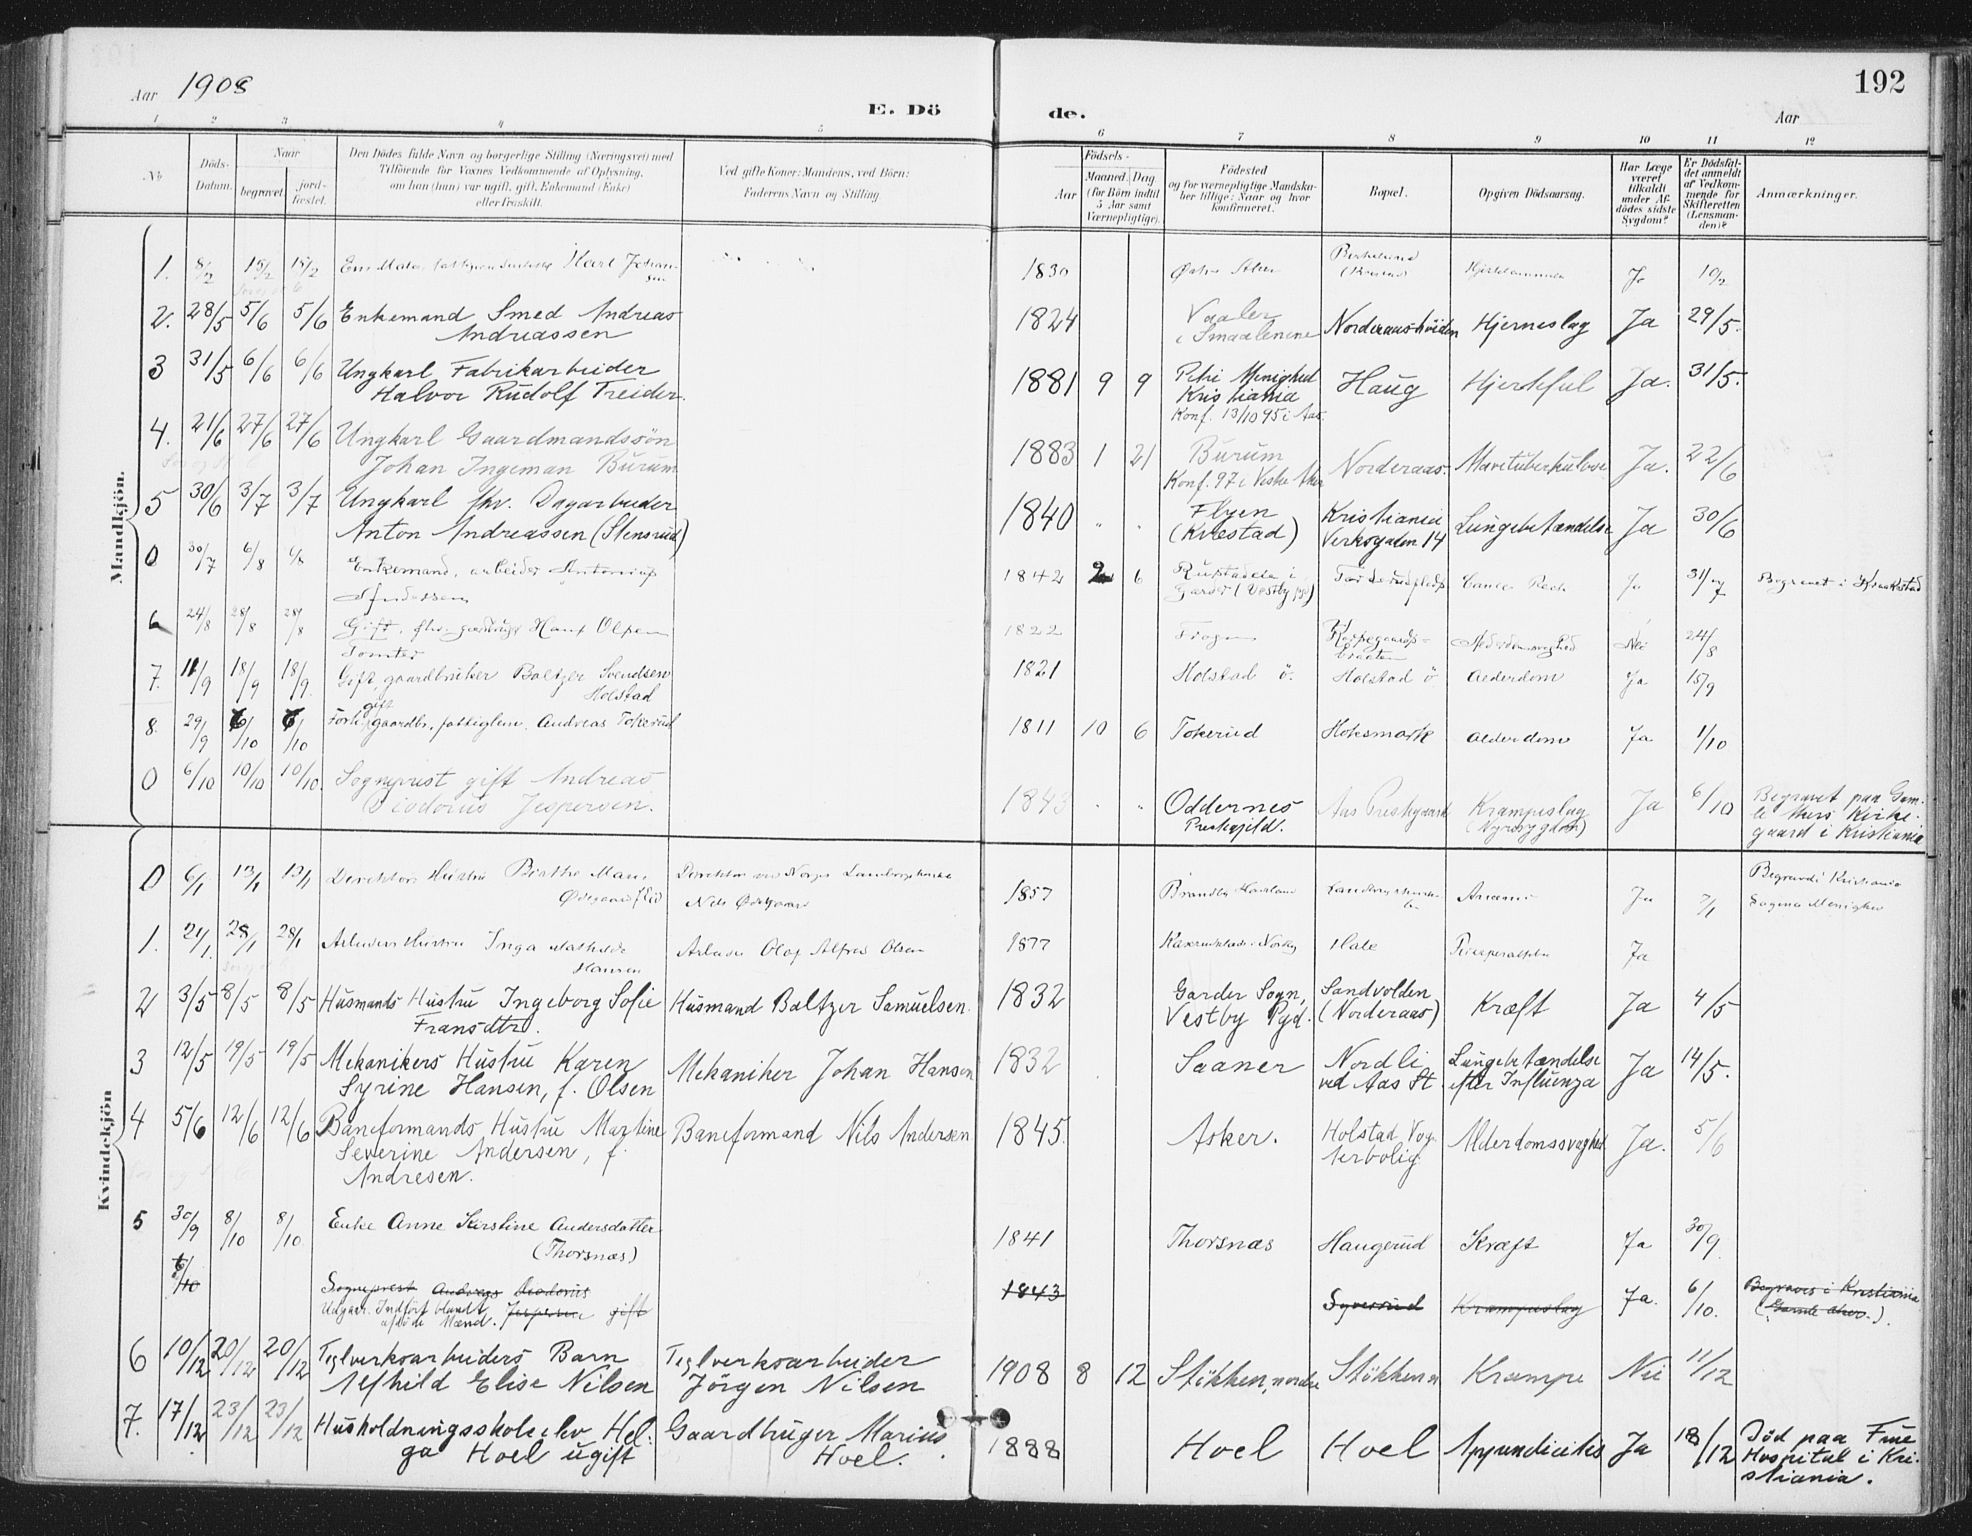 Aar 1908
E. Döde.
192
Aar
1 2 3 4 5 6 7 8 9 10 11 12
No
Döds-Datum.
Naar
begravet.
jord-fæstet.
Den Dödes fulde Navn og borgerlige Stilling (Næringsvei) med
Tilföiende for Voxnes Vedkommende af Oplysning,
om han (hun) var ugift, gift, Enkemand (Enke)
eller fraskilt.
Ved gifte Koner: Mandens, ved Börn:
Faderens Navn og Stilling.
Födsels-
Aar
Maaned. Dag
(for Börn indtil
5 Aar samt
Værnepligtige).
Födested
og for værnepligtige Mandska-
ber tillige: Naar og hvor
konfirmeret.
Bopæl.
Opgiven Dödsaarsag.
Har Læge
været
tilkaldt
under Af-
dödes sidste
Sygdom?
Er Dödsfal-
det anmeldt
af Vedkom-
mende for
Skifteretten
(Lensman-
den)?
Anmærkninger.
Mandkjön.
1. 8/2 15/2 15/2 1830 10/2
2. 28/5 5/6 5/6 Enkemand Smed Andreas
Andreassen
1824 Vaaler
i Smaalenene Norderaas-höiden Hjerneslag Ja 29/5.
3 31/5 6/6 6/6 Ungkarl Fabrikarbeider
Halvor Rudolf Treider.
1881 9 9 Petri Menighed
Kristiania
Konf. 13/10 95 i Aas Haug Hjertefeil Ja. 31/5.
4. 21/6 27/6 27/6 Ungkarl Gaardmandssön
Johan Ingeman Burum
1883 1 21 Burum
Konf. 97 i Norderaas. Mavetuberkulose Ja. 22/6
5 30/6 3/7 3/7 Ungkarl fhv. Dagarbeider
Anton Andreassen (Stensrud)
1840 " " Flyen
(Kvestad) Kristiania
Verksgaden 14 Lungebetændelse Ja 30/6
0 30/7 6/8 6/8 Enkemand, arbeider Antonius
Andersen
1842 2 6 i
Garder (Vestby pgj) Cancer Ja 31/7 Begravet i Kraakstad
6 24/8 28/8 28/8 Gift, fhv. gaardbruger Hans Olsen
Tomter
1822 Frogn Nei 24/8
7. 11/9 18/9 18/9. Gift, gaardbruker Baltzer Svendsen
Holstad
1821 Holstad ö. Holstad ö Alderdom Ja 15/9
8. 29/9 6/10 6/10 gift gaardbr., fattiglem. Andreas Tokerud
1811 10 6 Tokerud Holsmark Alderdom Ja 1/10
0 6/10 10/10 10/10. Sogneprest gift Andreas
Diodorius Jespersen.
1843 " " Oddernes
Prestegjeld. Aas Prestegaard Krampeslag
(Nyresygdom) Ja 6/10 Begravet paa Gam-
le Akers Kirke-
gaard i Kristiania
Kvindekjön
0 6/1 13/1 13/1 Direktörs Hustru Birthe Marie
Ødegaard f. Lid Direktör
Nils Ødegaard
1857 Ja 7/1 Begravet i Kristiania
Sagene Menighed
1. 21/1. 28/1 28/1 Arbeiders Hustru Inga Mathilde
Hansen Arbeider Olaf Alfred Olsen
1877 Ja
2 3/5 8/5 8/5 Husmands Hustru Ingeborg Sofie
Fransdtr. Husmand Baltzer Samuelsen.
1832 Garder Sogn,
Vestby Pgd. Sandvolden
(Norderaas) Kræft Ja 4/5
3 12/5 19/5 19/5 Mekanikers Hustru Karen
Syrine Hansen, f. Olsen Mekaniker Johan Hansen
1832 Saaner Nordli
ved Aas St. Lungebetændelse
efter Influenza Ja 14/5.
4 5/6 12/6 12/6 Baneformands Hustru Martine
Severine Andersen, f.
Andresen. Baneformand Nils Andersen
1845. Asker. Holstad Vog-
terbolig. Alderdomssvaghed Ja. 5/6
5 30/9 8/10 8/10 Enke Anne Kirstine Andersdatter
(Thorsnæs)
1841 Thorsnæs Haugerud Kræft Ja 30/9.
6/10 Sogneprest Andreas Diodorius
Udgaar. Indfört blandt Jespersen gift
aföde Mænd.
1843 Syverud Krampeslag Ja. 6/10. Begraves i Kristiania
(Gamle Akers.).
6 10/12 20/12 20/12 Teglverksarbeiders Barn
Alfhild Elise Nilsen Teglverksarbeider
Jörgen Nilsen
1908 8 12 Stökken, nordre Stökken n Krampe Nei 11/12
7. 17/12 23/12 23/12 Husholdningsskoleelev Hel-
ga Hoel ugift Gaardbruger Marius
Hoel.
1888 Hoel Hoel Appendicitis Ja 18/12 Död paa Frue
Hospital i Kri-
stiania.